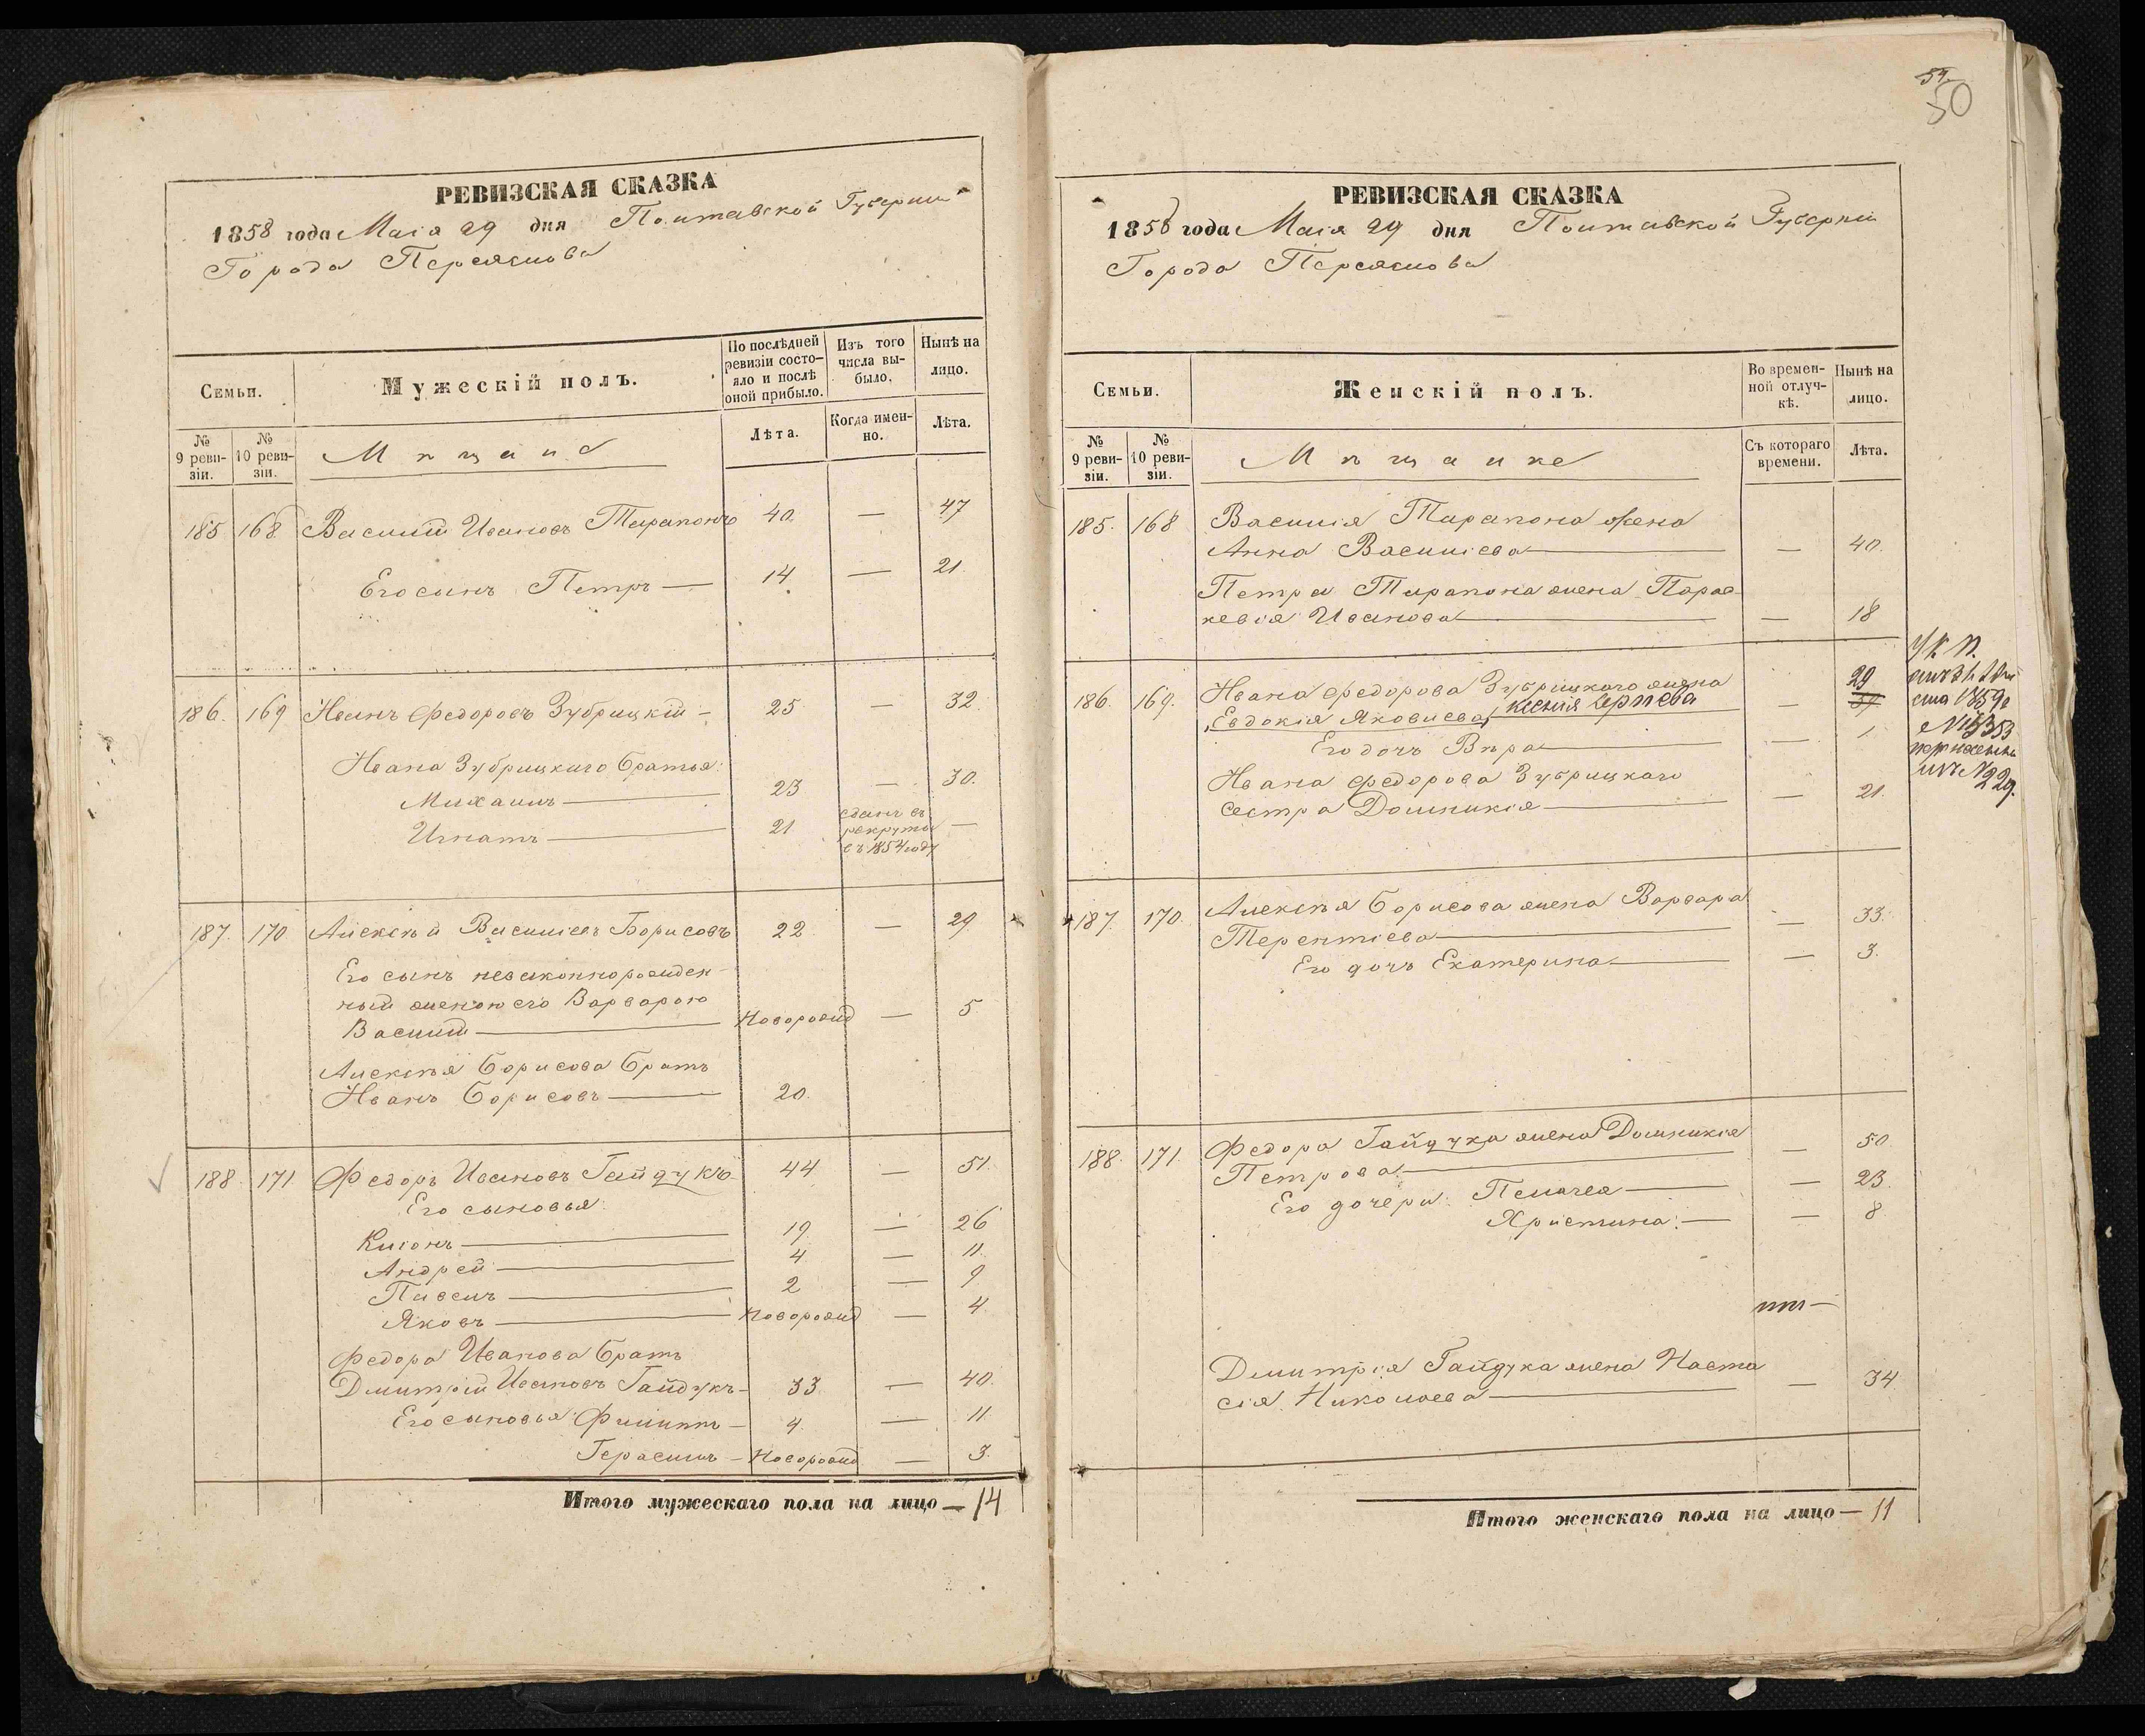 РЕВИЗСКАЯ СКАЗКА
1858 года Маія 29 дня Полтавской Губерніи
Города Переяслова
Семьи.
Мужескій полъ.
По послѣдней
ревизіи состо-
яло и послѣ
оной прибыло.
Изъ того
числа вы-
было.
Нынѣ на
лицо.
№
9 реви-
зіи.
№
10 реви-
зіи.
Мѣщане
Лѣта.
Когда имен-
но.
Лѣта.
185 168 Василій Ивановъ Тарапонъ 40 — 47
Его сынъ Петръ — 14 — 21
186. 169 Иванъ Федоровъ Зубрицкій — 25 — 32
Ивана Зубрицкаго братья:
Михаилъ — 23 — 30.
Игнатъ — 21 сданъ въ
рекруты —
въ 1854 году
187. 170 Алексѣй Василіевъ Борисовъ 22 — 29
Его сынъ незаконнорожден-
ный женою его Варварою
Василій — Новорожд — 5.
Алексѣя Борисова братъ
Иванъ Борисовъ — 20.
188. 171 Федоръ Ивановъ Гайдукъ 44 — 51.
Его сыновья:
Киіонъ — 19. — 26
Андрей — 4 — 11.
Павелъ — 2 — 9
Яковъ — Новорожд — 4.
Федора Иванова братъ
Дмитрій Ивановъ Гайдукъ — 33 — 40.
Его сыновья: Филиппъ — 4. — 11.
Герасимъ — Новорожд — 3.
Итого мужескаго пола на лицо — 14
54.
50
РЕВИЗСКАЯ СКАЗКА
1858 года Маія 29 дня Полтавской Губерніи
Города Переяслова
Семьи.
Женскій полъ.
Во времен-
ной отлуч-
кѣ.
Нынѣ на
лицо.
№
9 реви-
зіи.
№
10 реви-
зіи.
Мѣщанке
Съ котораго
времени.
Лѣта.
185. 168 Василія Тарапона жена
Анна Василіева — — 40.
Петра Тарапона жена Парас-
кевія Иванова — — 18
186. 169. Ивана Федорова Зубрицкаго жена 29
Евдокія Яковлева, Ксенія — 37
Его дочь Вѣра — — 1
Ивана Федорова Зубрицкаго
сестра Домникія — — 21.
У К П.
1859
№ 353
№ 229.
187. 170. Алексѣя Борисова жена Варвара
Терентіева — — 33.
Его дочь Екатерина — — 3.
188. 171. Федора Гайдука жена Домникія
Петрова: — — 50
Его дочери: Пелагея — — 23.
Христина: — — 8
Дмитрія Гайдука жена Наста
сія Николаева — — 34
Итого женскаго пола на лицо — 11